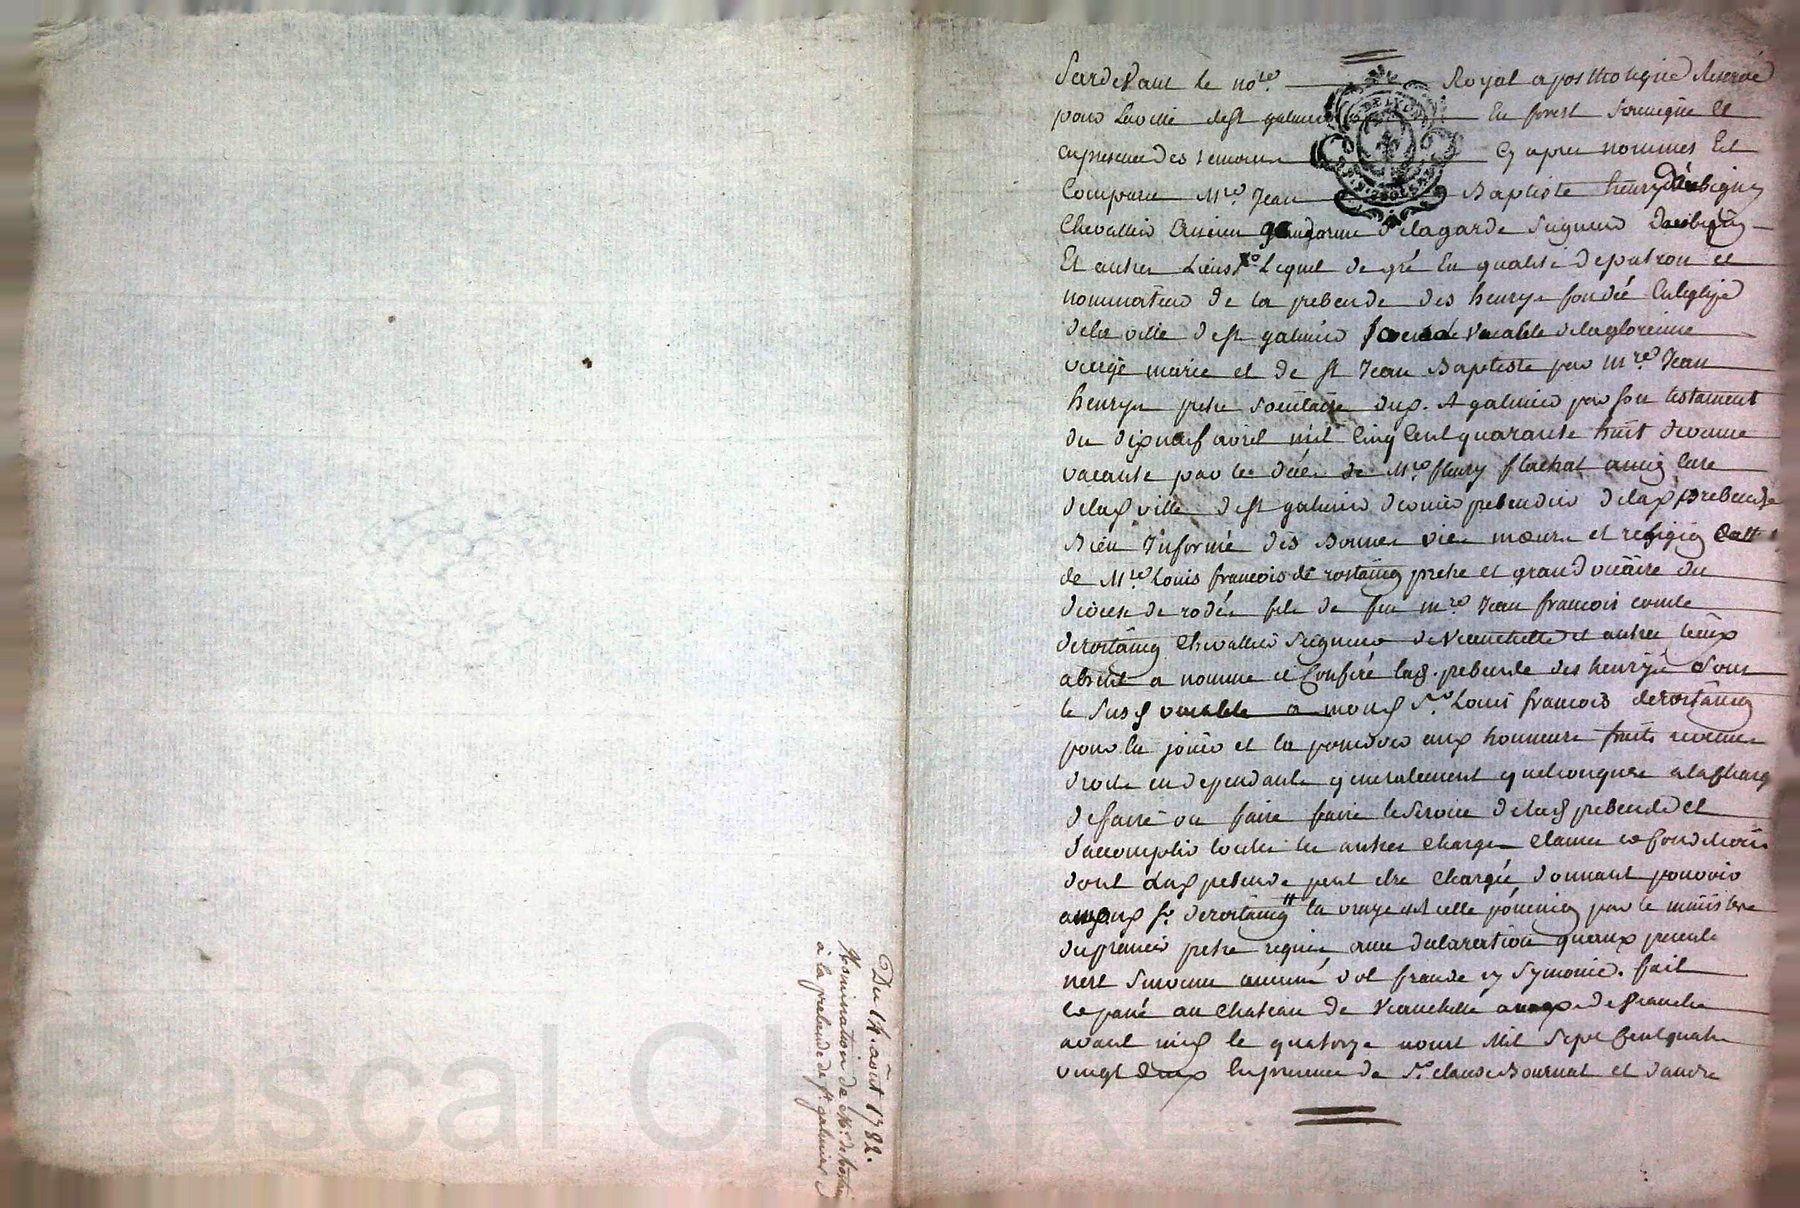 Du 14. août 1782.
Nomination de Mr. de Rostaing
à la prebende de st galmier
Pardevant le nore. Royal apostholique Reservé
pour la ville de st galmier En forest soussigné Et
En presence des temoins Cy apres nommés Est
Comparu Mre. Jean Baptiste henrys Daubigny
Chevallier Ancien gendarme delagarde Seigneur Daubigny
Et autres Lieux Lequel de gré En qualité de patron et
nominateur de la prebende des henrys fondée En leglise
dela ville de st galmier sous le vocable delaglorieuse
vierge marie et de st Jean Baptiste par mre Jean
henrys pretre societaire dud. St galmier par son testament
du dixneuf avril mil cinq Cent quarante huit devenue
vacante par le deces de Mre fleury flachat ancien Curé
delad ville de st galmier dernier prebendier delad prebende
Bien Informé des Bonnes vie mœurs et religion Catt
de Mre Louis francois de rostaing pretre et grand vicaire du
diocese de rodés fils de feu mre Jean francois comte
derostaing Chevallier Seigneur de Veauchette et autres lieux
absent a nommé et Conferé lad. prebende des henrys sous
le susd vocable a mond Sr. Louis francois derostaing
pour la jouir et la posseder aux honneurs fruits revenus
droits en dependants generalement quelconques a la charge
defaire ou faire faire le service delad prebende et
daccomplir toutes les autres charges Clauses et Conditions
dont lad prebende peut etre Chargée donnant pouvoir
aud Sr. derostaing la vraye et celle possession par le ministere
du premier pretre requis avec declaration quaux presente
nest survenu aucune dol fraude ny symonie. fait
et passé au chateau de Veauchette de Veauche
avant midy le quatorze aoust Mil Sept Cent quatre
vingt deux En presence de Sr. claude Bournat et dandre